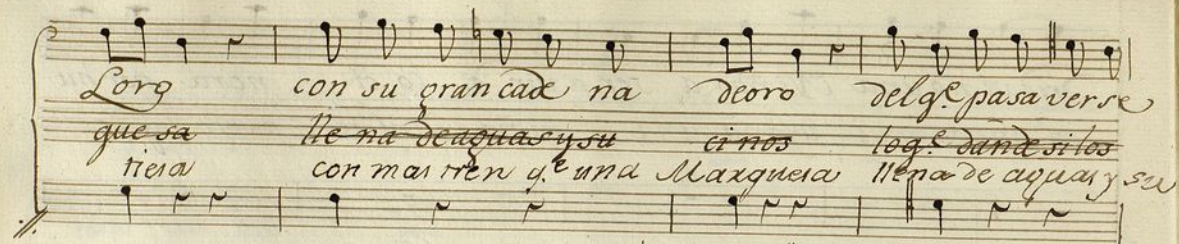 Loro con su gran cade na deoro delq.e pasa verse
que sa lle na de aguas y su ci nos loq.e dande si los
tiesa con mas tren q.e una Marquesa llena de aguas y su